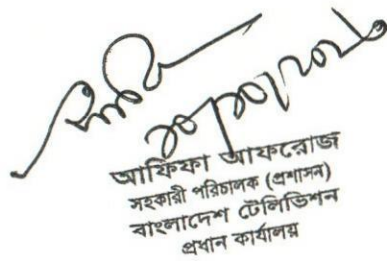 আফিফা আফরোজ
সহকারী পরিচালক (প্রশাসন)
বাংলাদেশ টেলিভিশন
প্রধান কার্যালয়